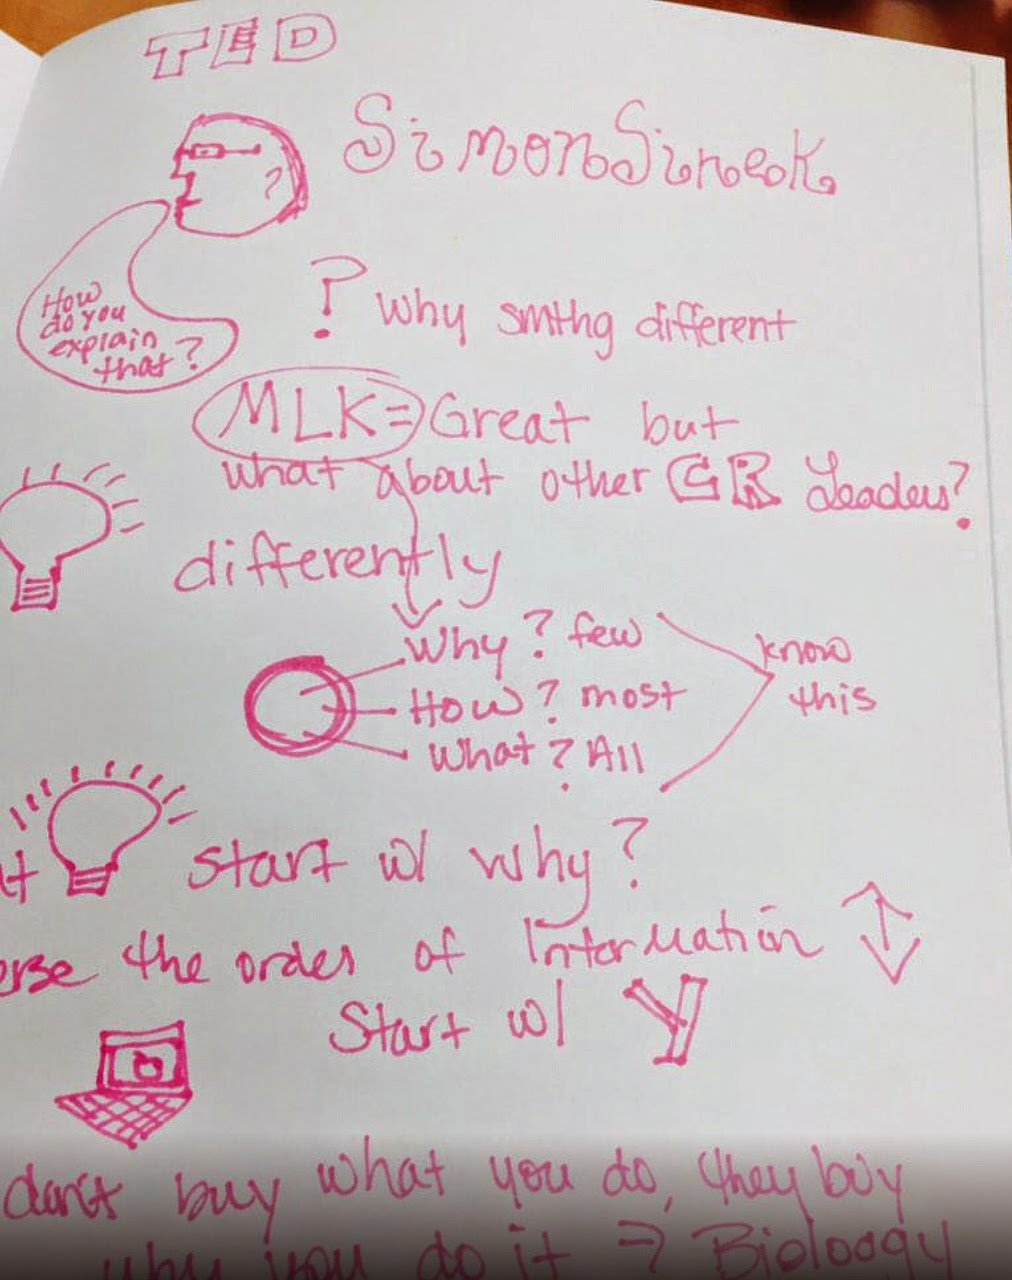 TED
Simon Sineck
How
do you
explain
that?
? Why smthg different
MLK = Great but
what about other CR Leaders?
differently
Why? few
How? most
What? All
know
this
start w/ why?
the order of Information
Start w/ Y
don't buy what you do, they buy
why you do it → Bioloogy